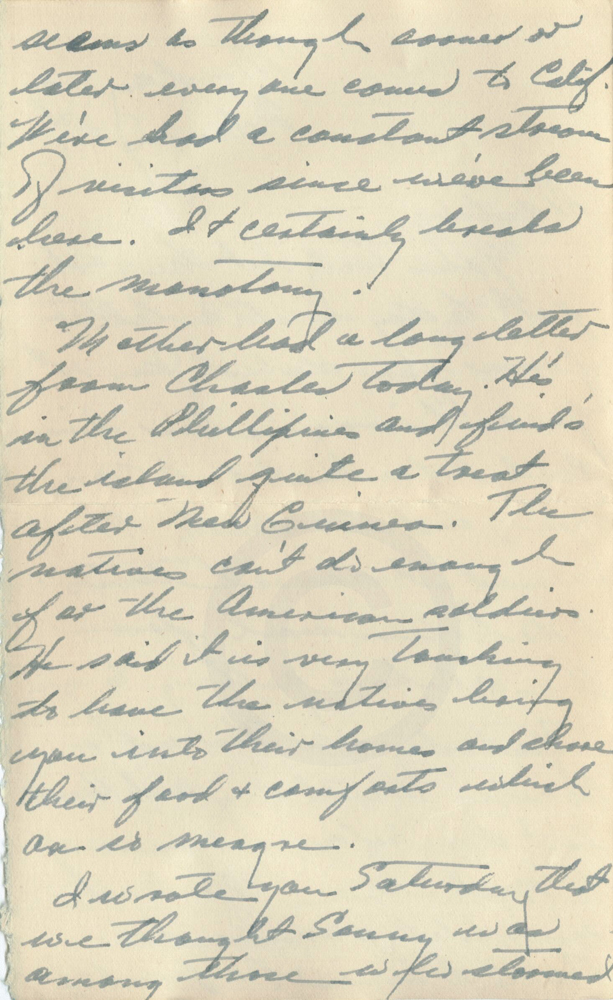 seems as though sooner or
later every one comes to Calif.
We've had a constant stream
of visitors since we've been
here. It certainly breaks
the monotony.
Mother had a long letter
from Charles today. He's
in the Phillipines and finds
the island quite a treat
after New Guinea. The
natives can't do enough
for the American soldiers.
He said it is very touching
to have the natives bring
you into their homes and share
their food & comforts which
are so meagre.
I wrote you Saturday that
we thought Sonny was
among those who stormed